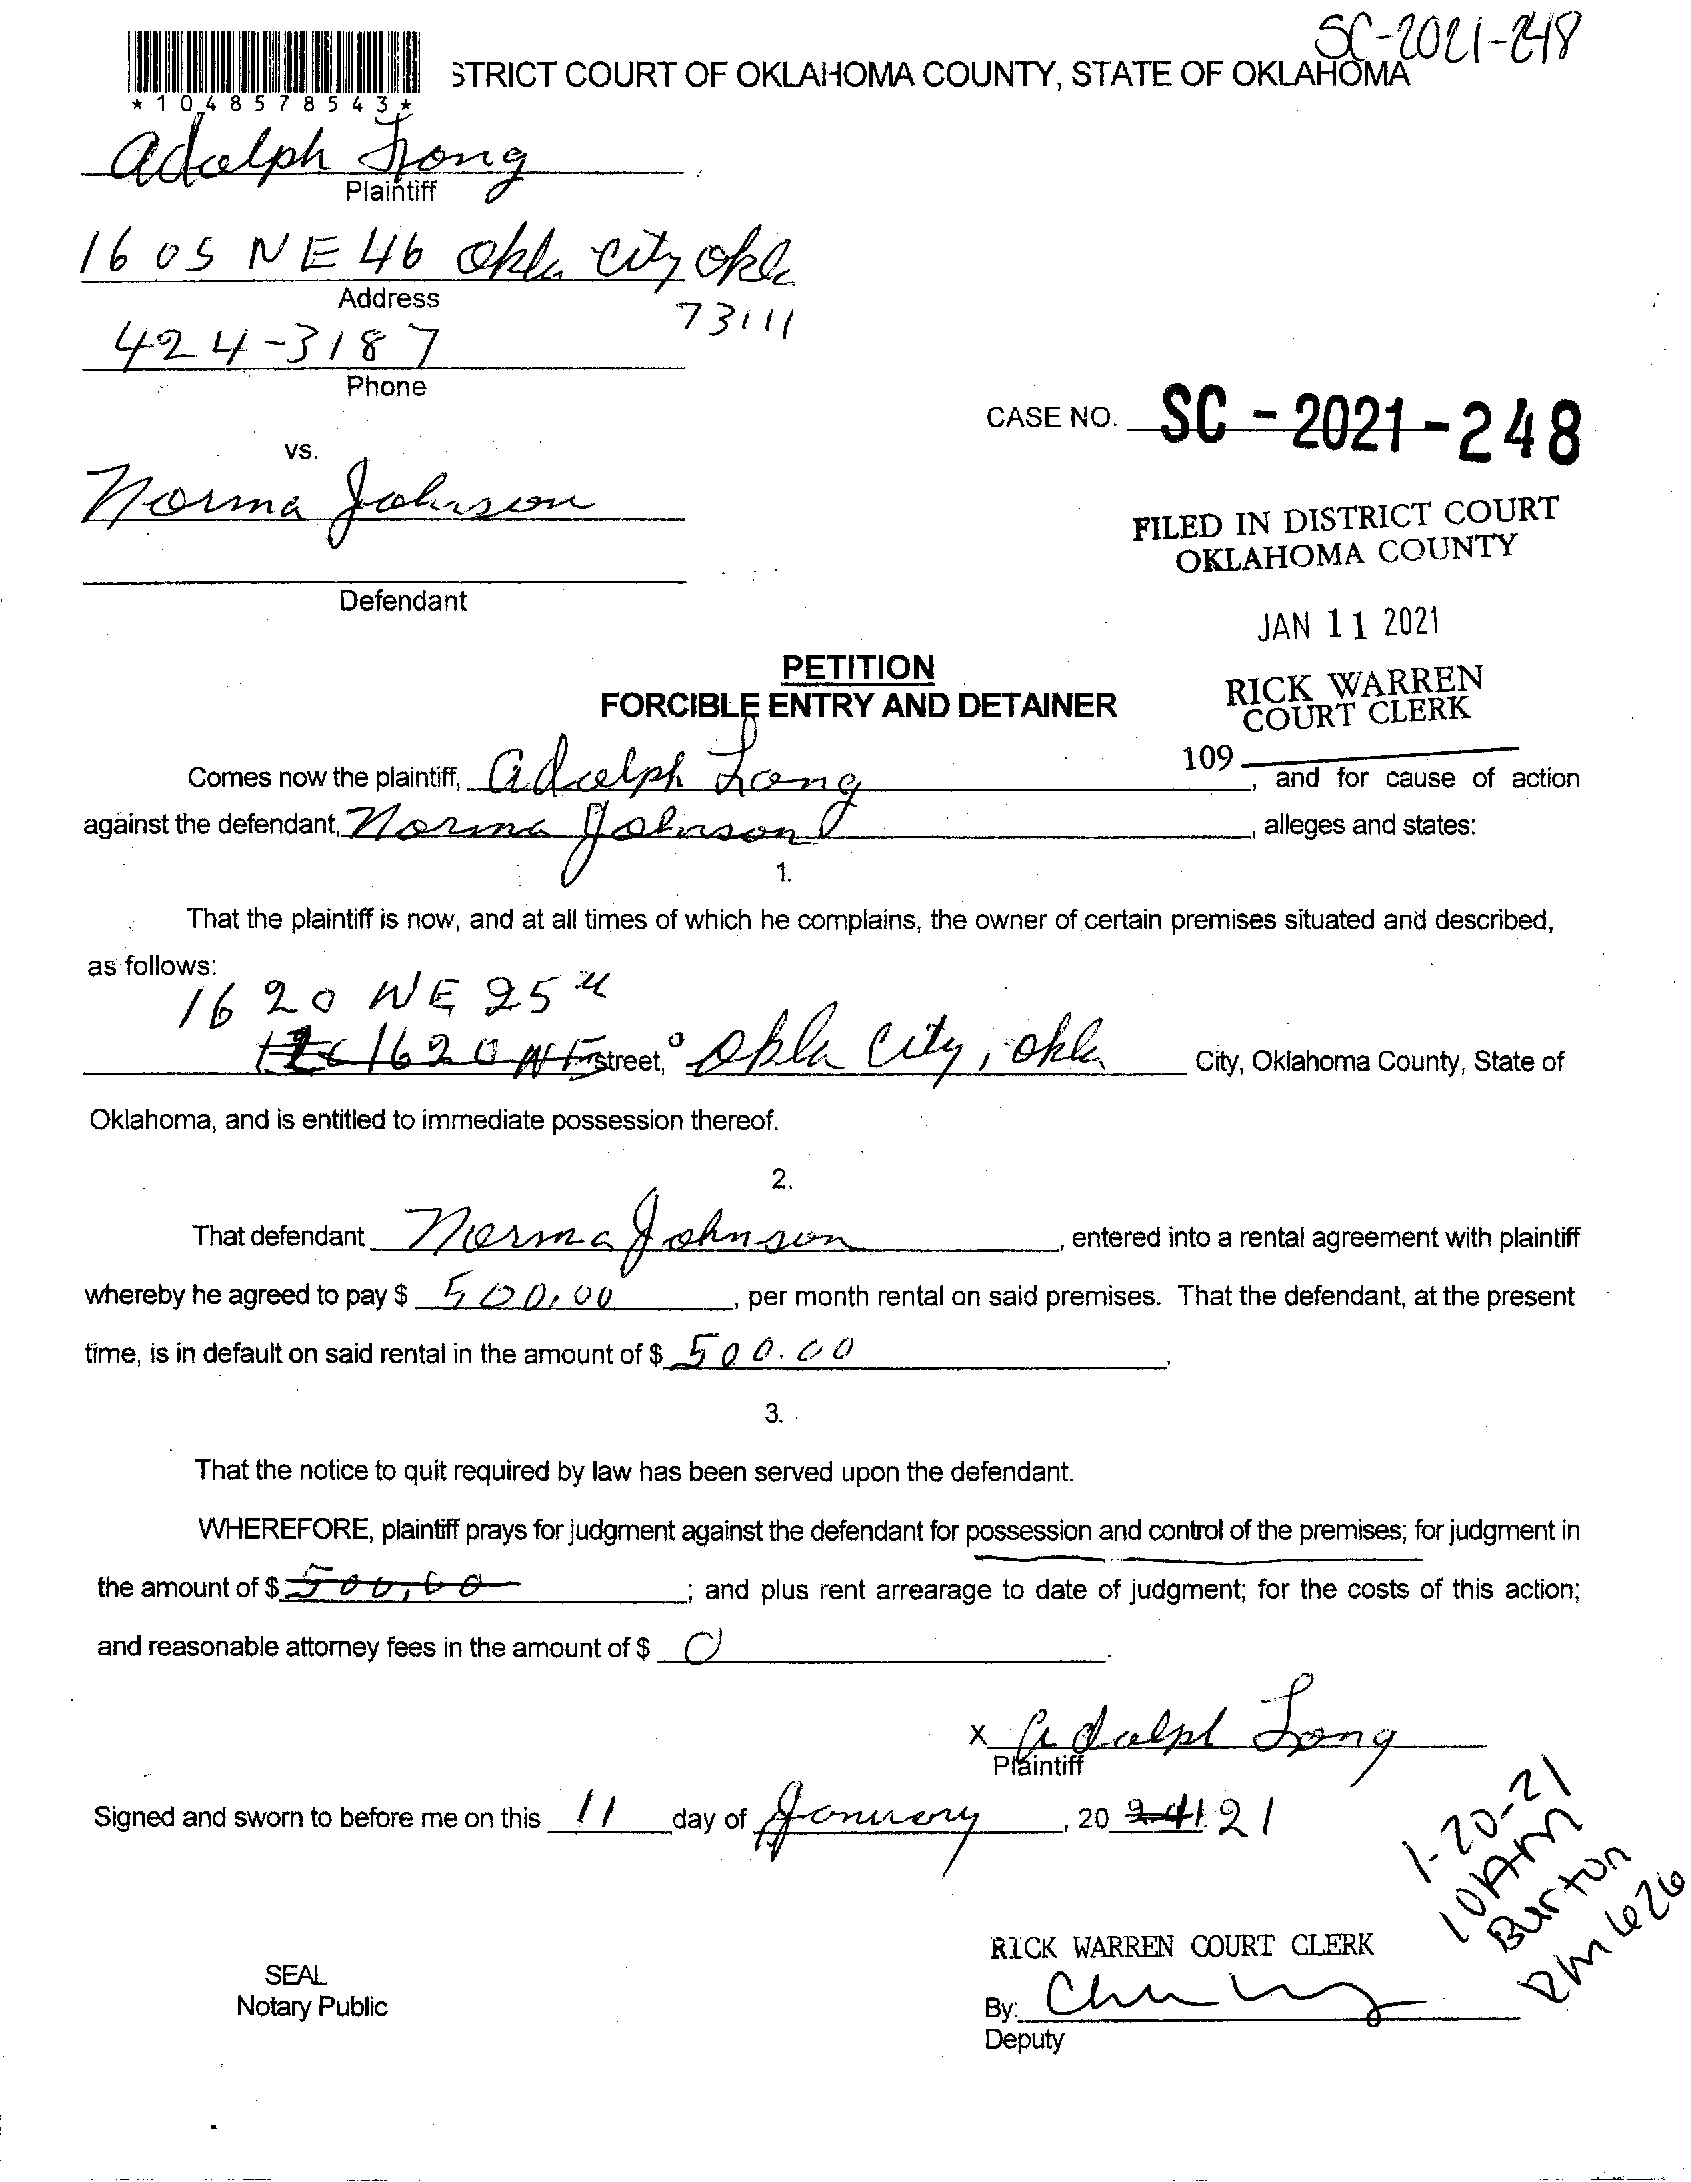 SC-2021-248
STRICT COURT OF OKLAHOMA COUNTY, STATE OF OKLAHOMA
*1048578543*
Adolph Long
Plaintiff
1605 NE 46 Okla City Okla
73111
Address
424-3187
Phone
CASE NO. SC - 2021 - 248
vs.
Norma Johnson
FILED IN DISTRICT COURT
OKLAHOMA COUNTY
Defendant
JAN 11 2021
PETITION
FORCIBLE ENTRY AND DETAINER
RICK WARREN
COURT CLERK
109
Comes now the plaintiff, Adolph Long, and for cause of action
against the defendant, Norma Johnson, alleges and states:
1.
That the plaintiff is now, and at all times of which he complains, the owner of certain premises situated and described,
as follows:
1620 NE 25th
1620 NE street, Okla City, Okla City, Oklahoma County, State of
Oklahoma, and is entitled to immediate possession thereof.
2.
That defendant Norma Johnson, entered into a rental agreement with plaintiff
whereby he agreed to pay $ 500.00, per month rental on said premises. That the defendant, at the present
time, is in default on said rental in the amount of $ 500.00.
3.
That the notice to quit required by law has been served upon the defendant.
WHEREFORE, plaintiff prays for judgment against the defendant for possession and control of the premises; for judgment in
the amount of $ 500.00; and plus rent arrearage to date of judgment; for the costs of this action;
and reasonable attorney fees in the amount of $ 0.
X Adolph Long
Plaintiff
Signed and sworn to before me on this 11 day of January, 20 21
1-20-21
10AM
Burton
RM 626
RICK WARREN COURT CLERK
SEAL
Notary Public
By:
Deputy